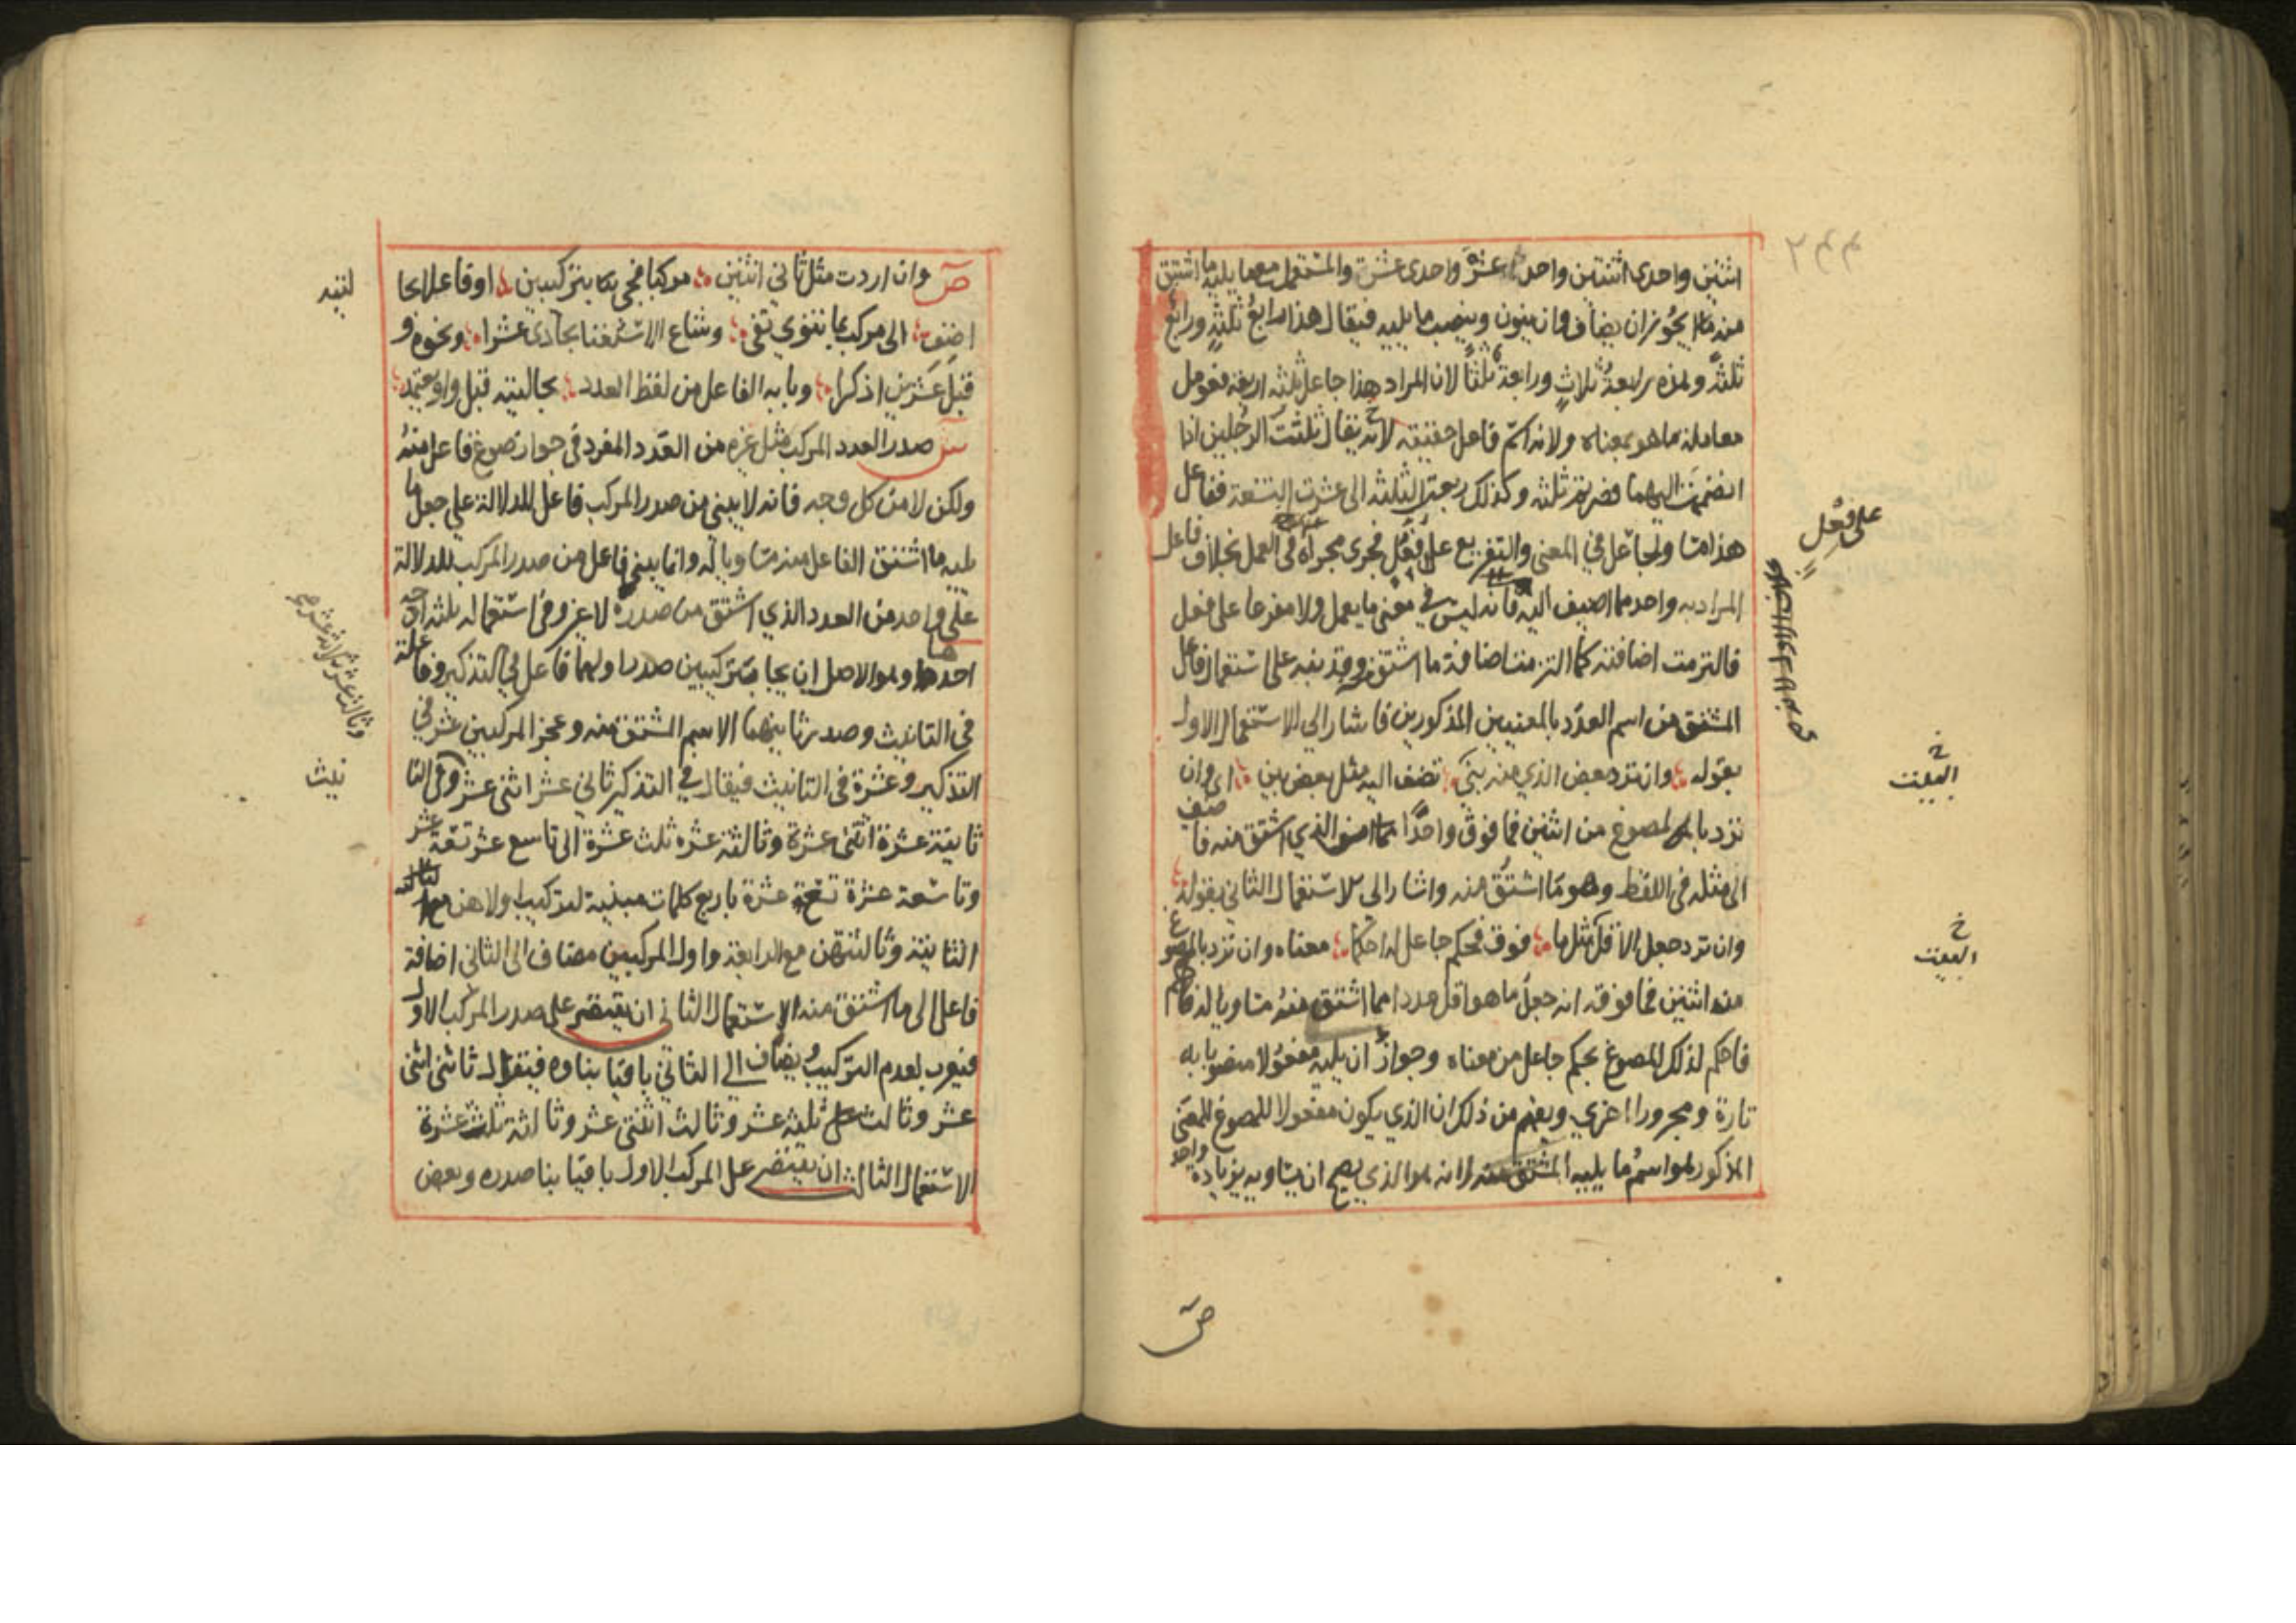 اثنين واحدى اثنتين واحد عشرة واحدى عشرة والمستعمل معها يليه ما اشتق
منه يجوز ان يضاف وان ينون وينصب ما يليه فيقال هذا رابع ثلثة ورابع
ثلثة وهذه رابعة ثلاث ورابعة ثلثا لان المراد هذا جاعل ثلثه اربعة فعومل
معاملة ما هو بمعناه ولانه اسم فاعل حقيقة لانه يقال ثلثت الرجلين اذا
انضممت اليهما فصرتم ثلثه وكذلك ربعت الثلثه الى عشرت التسعة ففاعل
هذا مساو لجاعل في المعنى والتفريع على فعل فجرى مجراه في العمل بخلاف فاعل
المراد به واحد مما اضيف اليه فانه ليس في معنى ما يعمل ولا مفرعا على فعل
فالتزمت اضافته كما التزمت اضافة ما اشتق منه وقد نبه على استعمال فاعل
المشتق من اسم العدد بالمعنيين المذكورين فاشار الى الاستعمال الاول
بقوله وان ترد بعض الذي منه بني تضف اليه مثل بعض بين اي وان
ترد بالمصوغ من اثنين فما فوق واحدا مما الذي اشتق منه فاضف
الى مثله في اللفظ وهو ما اشتق منه واشار الى الاستعمال الثاني بقوله
وان ترد جعل الاقل مثل ما فوق فحكم جاعل له احكما معناه وان ترد بالمصوغ
من اثنين فما فوقه انه جعل ما هو اقل عددا مما اشتق منه مساويا له
فاحكم لذلك المصوغ بحكم جاعل من معناه وجواز ان يليه مفعولا منصوبا به
تارة ومجرورا اخرى ويفهم من ذلك ان الذي يكون مفعولا للمصوغ للمعنى
المذكور هو اسم ما يليه المشتق منه لانه هو الذي يصح ان يساويه بزيادة واحد
على فعل
خ
خ
ص
ص وان اردت مثل ثاني اثنين مركبا فجئ بتركيبين او فاعلا بحا
اضف الى مركب بما تنوي تفي وشاع الاستغنا بحادي عشرا ونحوه و
قبل عشرين اذكرا وبابه الفاعل من لفظ العدد بحالتيه قبل واو يعتمد
ش صدر العدد المركب مثل غيره من العدد المفرد في جواز صوغ فاعل منه
ولكن لا من كل وجه فانه لا يبنى من صدر المركب فاعل للدلالة على جعل ما
يليه ما اشتق الفاعل منه مساويا له وانما يبنى فاعل من صدر المركب للدلالة
على واحد من العدد الذي اشتق من صدره لا غير وفي استعماله ثلثه اوجه
احدها وهو الاصل ان يجا بتركيبين صدر اولهما فاعل في التذكير وفاعلة
في التانيث وصدر ثانيهما الاسم المشتق منه وعجز المركبين عشر في
التذكير وعشرة في التانيث فيقال في التذكير ثاني عشر اثني عشر وفي التا
ثانية عشرة اثنتي عشرة وثالثة عشره ثلث عشرة الى تاسع عشر تسعة عشر
وتاسعة عشرة تسع عشرة باربع كلمات مبنية لتركيب اولاهن مع
الثانية وثالثتهن مع الرابعة واول المركبين مضاف الى الثاني اضافة
فاعل الى ما اشتق منه الاستعمال الثاني ان يقتصر على صدر المركب الاول
فيعرب لعدم التركيب ويضاف الى الثاني باقيا بناوه فيقال ثاني اثني
عشر وثالث ثلثه عشر وثالث اثنتي عشر وثالثة ثلث عشرة
الاستعمال الثالث ان يقتصر على المركب الاول باقيا بنا صدره وبعض
نيث